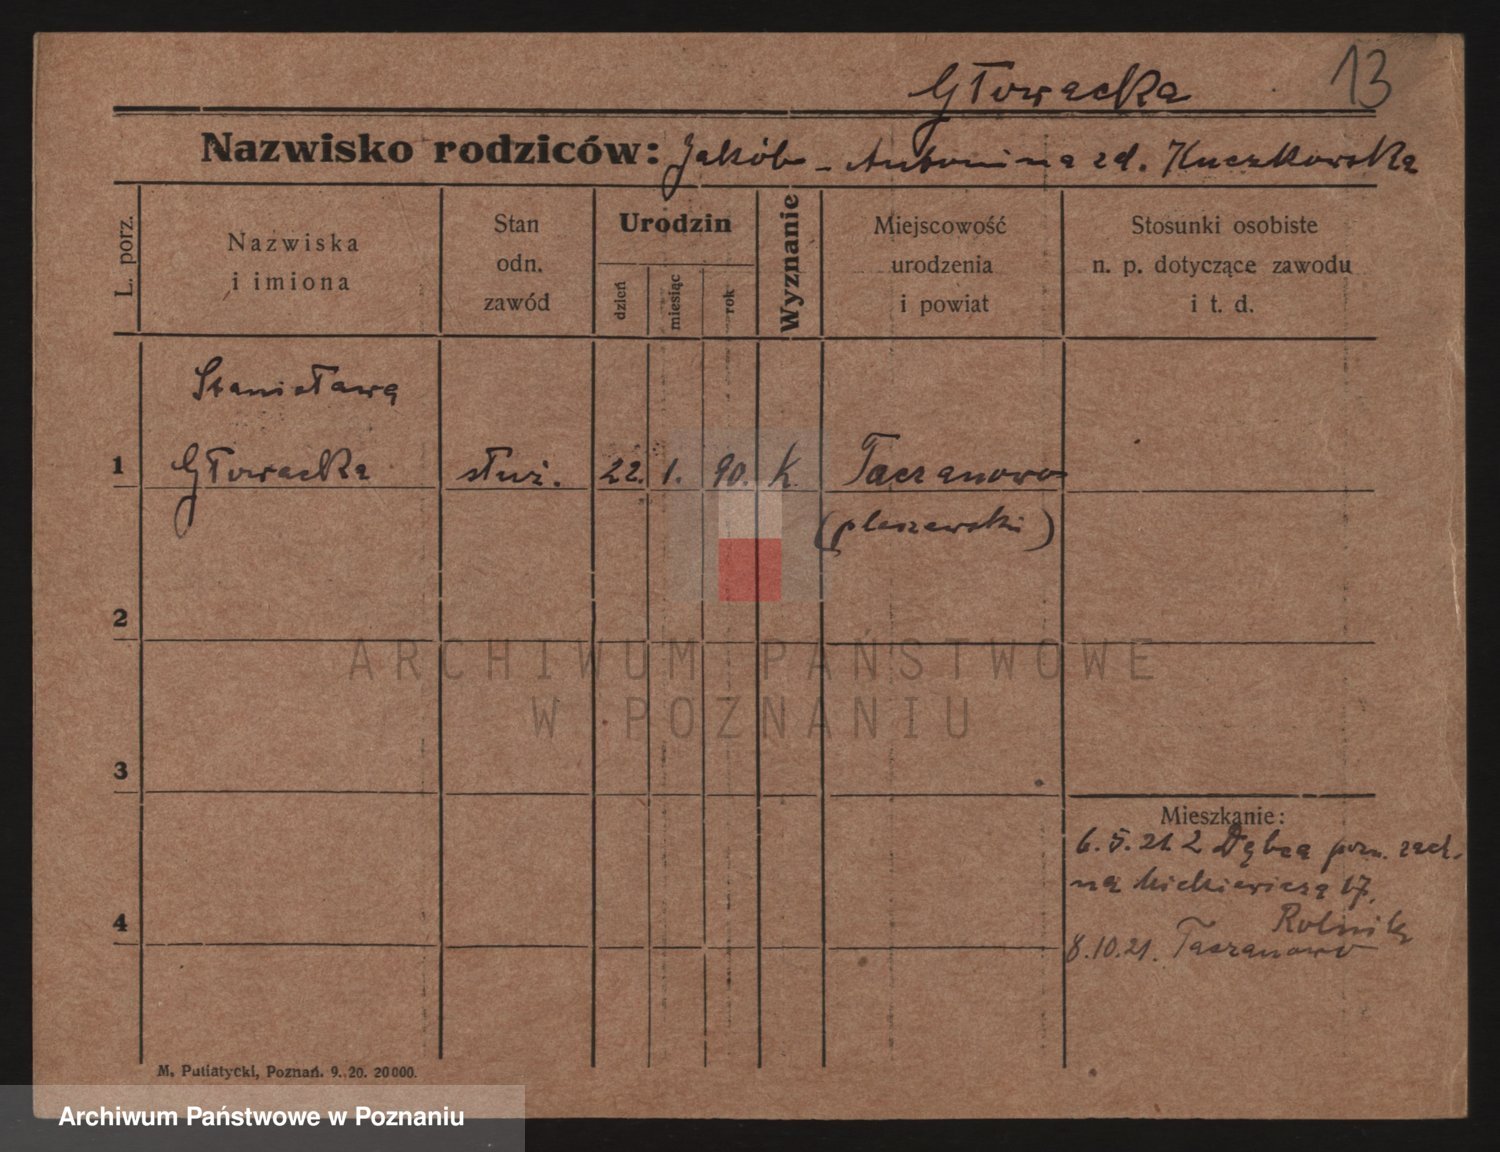 13
Głowacka
Nazwisko rodziców: Jakób - Antonina zd. Kuczkowska
L. porz.
Nazwiska
i imiona
Stan
odn.
zawód
Urodzin
dzień
miesiąc
rok
Wyznanie
Miejscowość
urodzenia
i powiat
Stosunki osobiste
n. p. dotyczące zawodu
i t. d.
Stanisława
1 Głowacka służ. 22. 1. 90. K. Taczanowo
(pleszewski)
2
ARCHIWUM PAŃSTWOWE
W POZNANIU
3
Mieszkanie:
6. 5. 21. z Dębca pozn. zach.
na Mickiewicza 17.
Rolnik
4
8.10.21. Taczanowo
M. Putiatycki, Poznań. 9. 20. 20000.
Archiwum Państwowe w Poznaniu